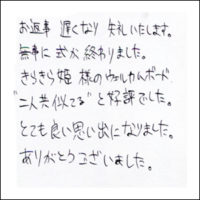 お返事 遅くなり 失礼いたします。
無事に 式が終わりました。
きらきら姫 様のウェルカムボード
"二人共似てる" と好評でした。
とても良い思い出になりました。
ありがとうございました。